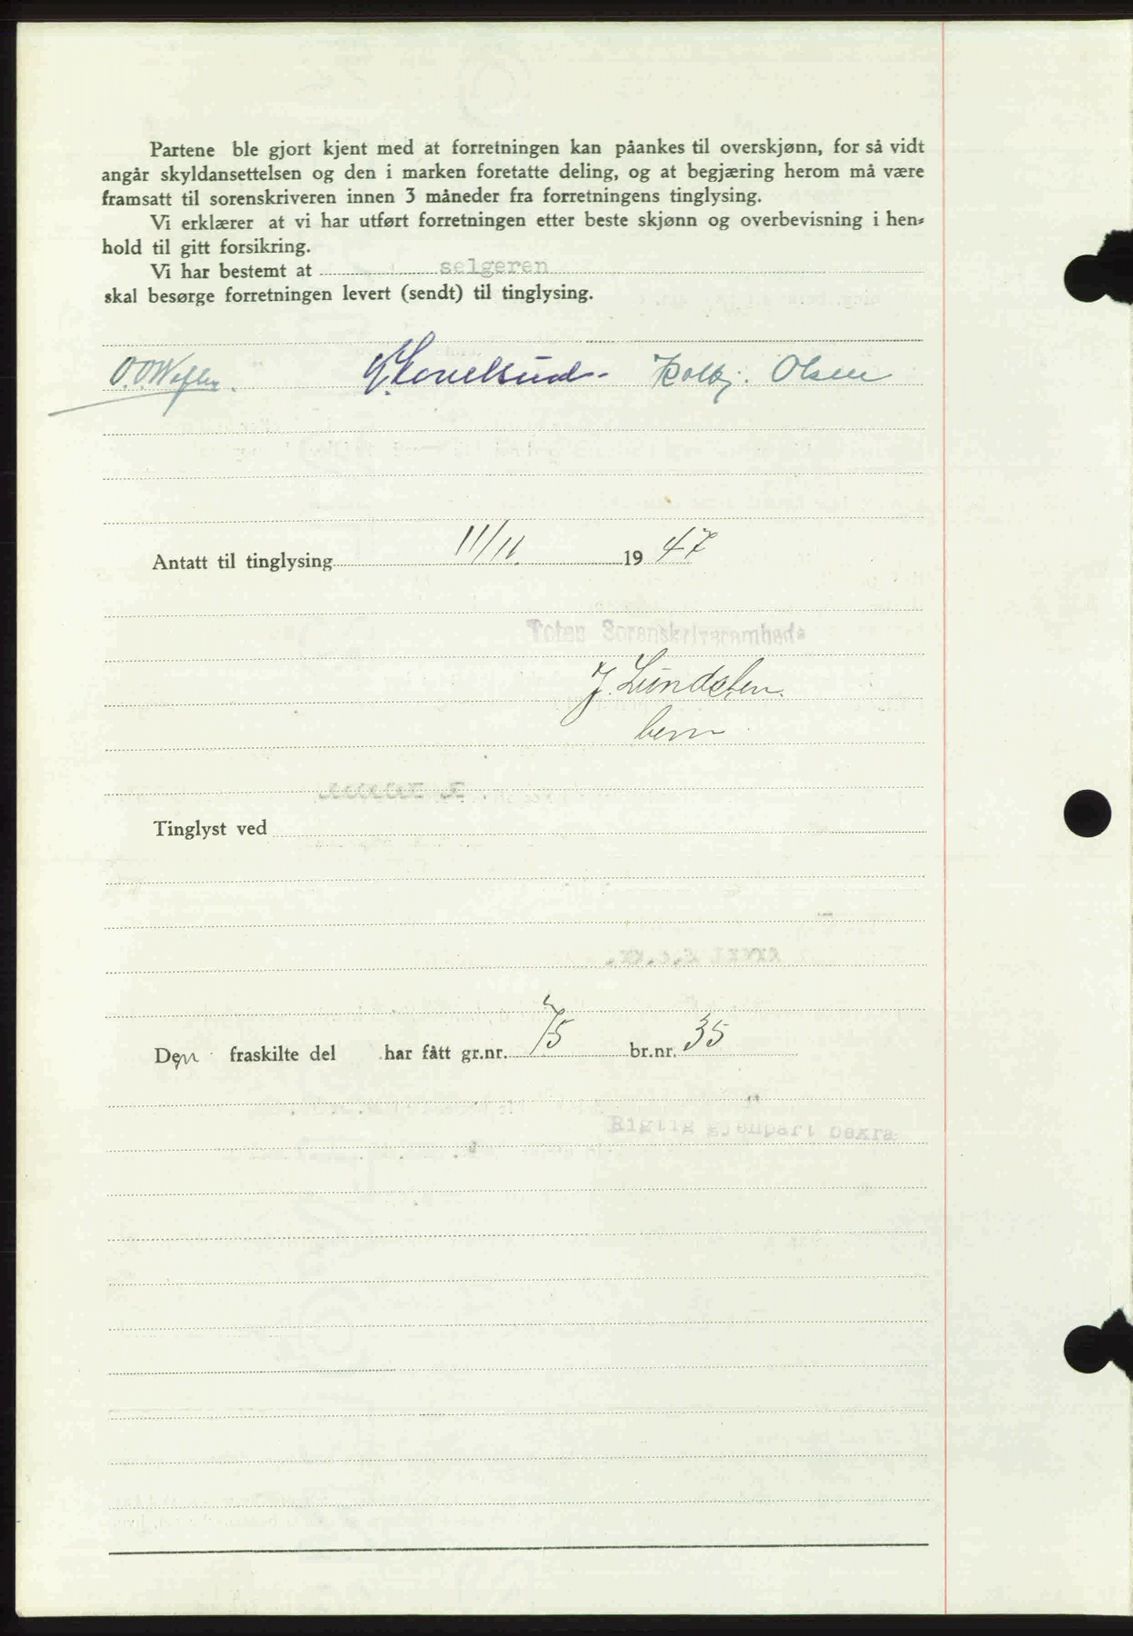 Partene ble gjort kjent med at forretningen kan påankes til overskjønn, for så vidt
angår skyldansettelsen og den i marken foretatte deling, og at begjæring herom må være
framsatt til sorenskriveren innen 3 måneder fra forretningens tinglysing.
Vi erklærer at vi har utført forretningen etter beste skjønn og overbevisning i hen-
hold til gitt forsikring.
Vi har bestemt at selgeren
skal besørge forretningen levert (sendt) til tinglysing.
Kolbj. Olsen
Antatt til tinglysing 11/11. 19 47
Toten Sorenskriverembede
J. Lundsten
Tinglyst ved
Den fraskilte del har fått gr.nr. 75 br.nr. 35